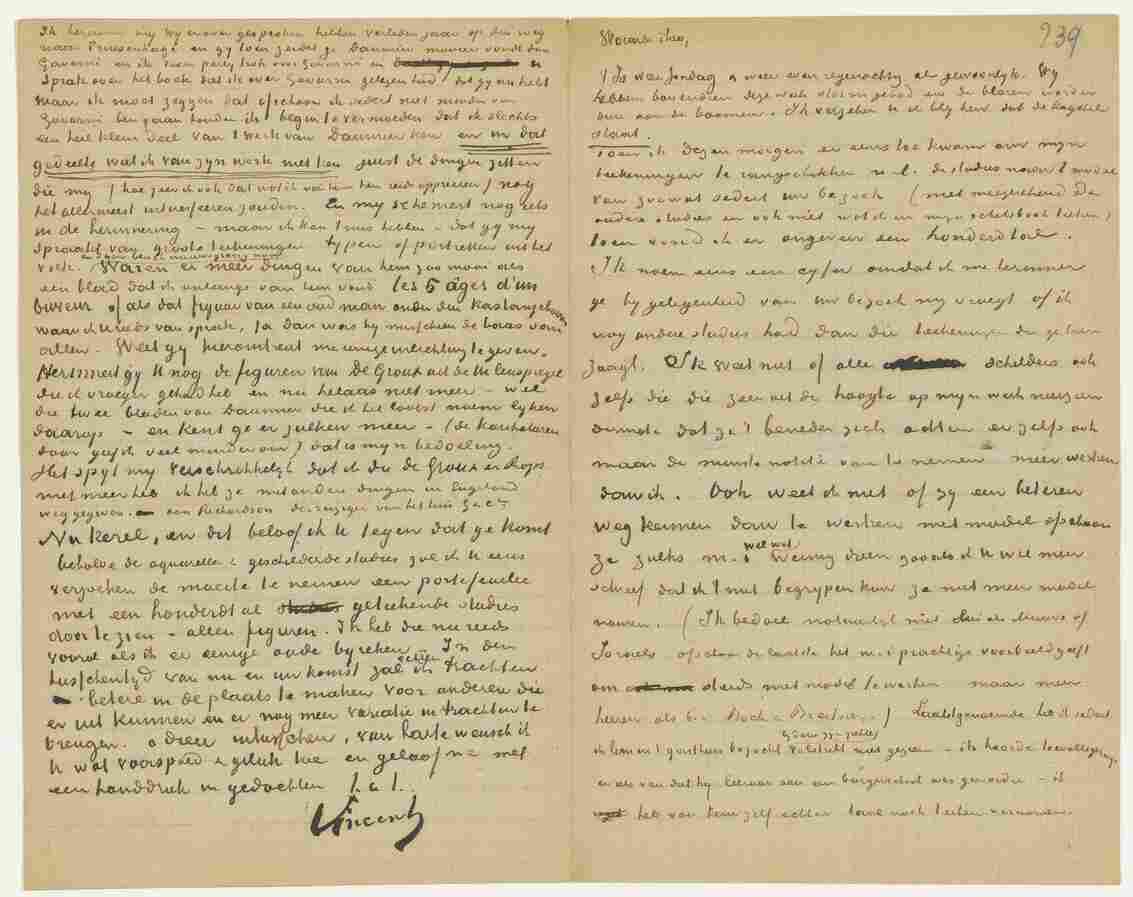 Ik herinner my wy erover gesproken hebben verleden jaar op den weg
naar Prinsenhage en gy toen zeidet ge Daumier mooier vondt dan
Gavarni en ik toen party trok voor Gavarni en U
sprak over het boek dat ik over Gavarni gelezen had, dat gy nu hebt
Maar ik moet zeggen dat ofschoon ik sedert niet minder van
Gavarni ben gaan houden ik begin te vermoeden dat ik slechts
een heel klein deel van 't werk van Daumier ken en in dat
gedeelte wat ik van zyn werk niet ken juist de dingen zitten
die my (hoe zeer ik ook dat wat ik van hem ken reeds apprecieer) nog
het allermeest interesseeren zouden. En my schemert nog iets
in de herinnering – maar ik kan 't mis hebben – dat gy my
spraakt van groote teekeningen typen of portretten uit het
volk. Waren er meer dingen van hem zoo mooi als
een blad dat ik onlangs van hem vond les 5 âges d'un
buveur of als dat figuur van een oud man onder den Kastangeboom
waar ik U reeds van sprak, ja dan was hy misschien de baas van
allen. Weet gy hieromtrent me eenige inlichting te geven.
Herinnert gy U nog de figuren van De Groux uit de Uilenspiegel
die ik vroeger gehad heb en nu helaas niet meer – wel
die twee bladen van Daumier die ik het laatst noem lyken
daarop – en kent ge er zulken meer – (de karikaturen
daar geef ik veel minder om) dat is myn bedoeling.
Het spyt my verschrikkelyk dat ik die de Groux en Rops
niet meer heb ik heb ze met andere dingen in Engeland
weggegeven. aan Richardson de reiziger van het huis G & Cie
Nu kerel, en dit beloof ik U tegen dat ge komt
behalve de aquarellen & geschilderde studies zal ik U eens
verzoeken de moeite te nemen een portefeuille
met een honderdtal geteekende studies
door te zien – alleen figuren. Ik heb die nu reeds
vooral als ik er eenige oude by reken. In den
tusschentyd van nu en uw komst zal ik echter trachten
betere in de plaats te maken voor anderen die
er uit kunnen en er nog meer variatie in trachten te
brengen. adieu intusschen, van harte wensch ik
U wat voorspoed & geluk toe en geloof me met
een handdruk in gedachten t. à t.
Vincent
239
Waarde Theo,
't Is weer zondag & weer even regenachtig als gewoonlyk. Wy
hebben bovendien deze week storm gehad en de bladen worden
dun aan de boomen. Ik verzeker U ik bly ben dat de kagchel
staat.
Toen ik dezen morgen er eens toe kwam om myn
teekeningen te rangschikken n.l. de studies naar 't model
van zoowat sedert uw bezoek (niet meegerekend de
oudere studies en ook niet wat ik in myn schetsboek teeken)
toen vond ik er ongeveer een honderdtal.
Ik noem eens een cyfer omdat ik me herinner
ge by gelegenheid van uw bezoek my vroegt of ik
nog andere studies had dan die teekeningen die ge toen
zaagt. Ik weet niet of alle schilders ook
zelfs die die zeer uit de hoogte op myn werk neerzien
dermate dat ze 't beneden zich achten er zelfs ook
maar de minste notitie van te nemen meer werken
dan ik. Ook weet ik niet of zy een beteren
weg kennen dan te werken met model ofschoon
ze zulks m.i. wel wat weinig doen zooals ik U wel meer
schreef dat ik 't niet begrypen kan ze niet meer model
namen. (Ik bedoel natuurlyk niet lui als Mauve of
Israels ofschoon de laatste het m.i. prachtige voorbeeld geeft
om steeds met model te werken maar meer
heeren als b.v. Bock & Breitner.) Laatstgenoemde heb ik sedert
ik hem in 't gasthuis bezocht volstrekt niet gezien – ik hoorde toevalligerwyze
er als van dat hy leeraar aan een burgerschool was geworden – ik
heb van hem zelf echter taal noch teeken vernomen.